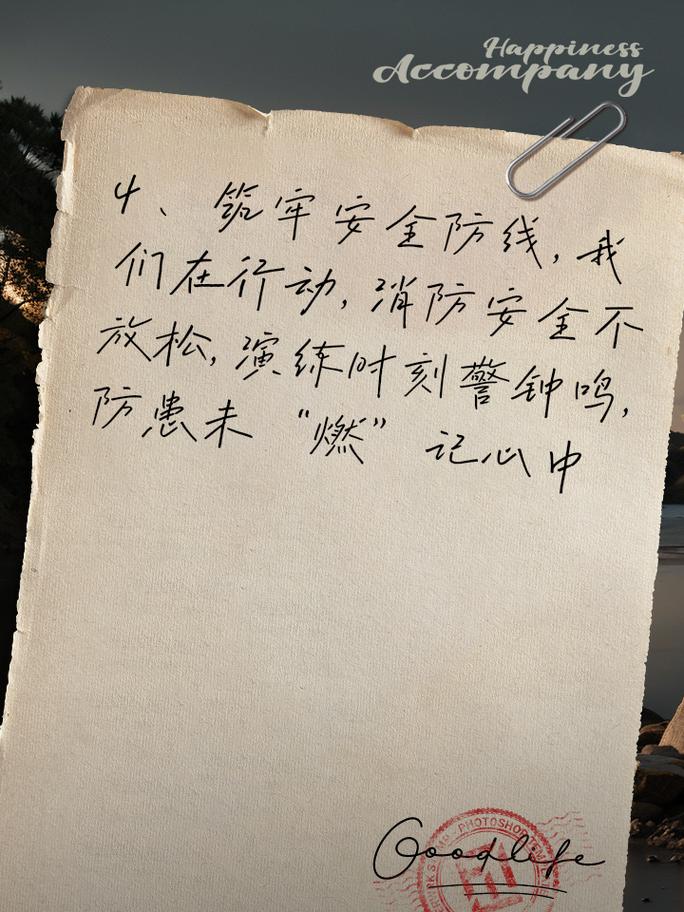 Happiness
Accompany
4、筑牢安全防线,我
们在行动,消防安全不
放松,演练时刻警钟鸣,
防患未“燃”记心中
Goodlife
PHOTOSHOP